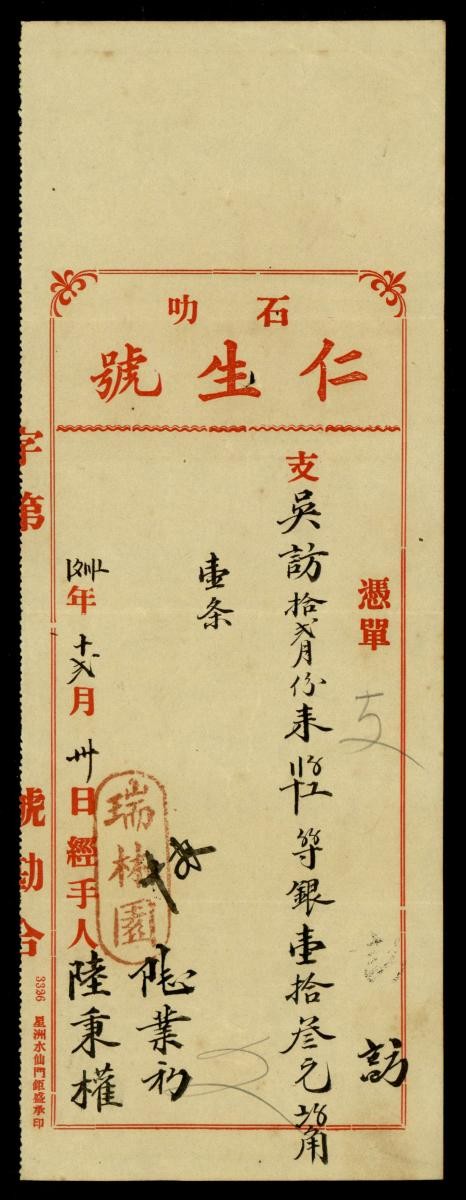 石叻
仁生號
憑單
訪
支吳訪拾弍月份来
等銀壹拾叁元
角
壹条
瑞林園
業初
年十弍月卅日經手人陸秉權
字第
號勘合
3336 星洲水仙門鉅盛承印